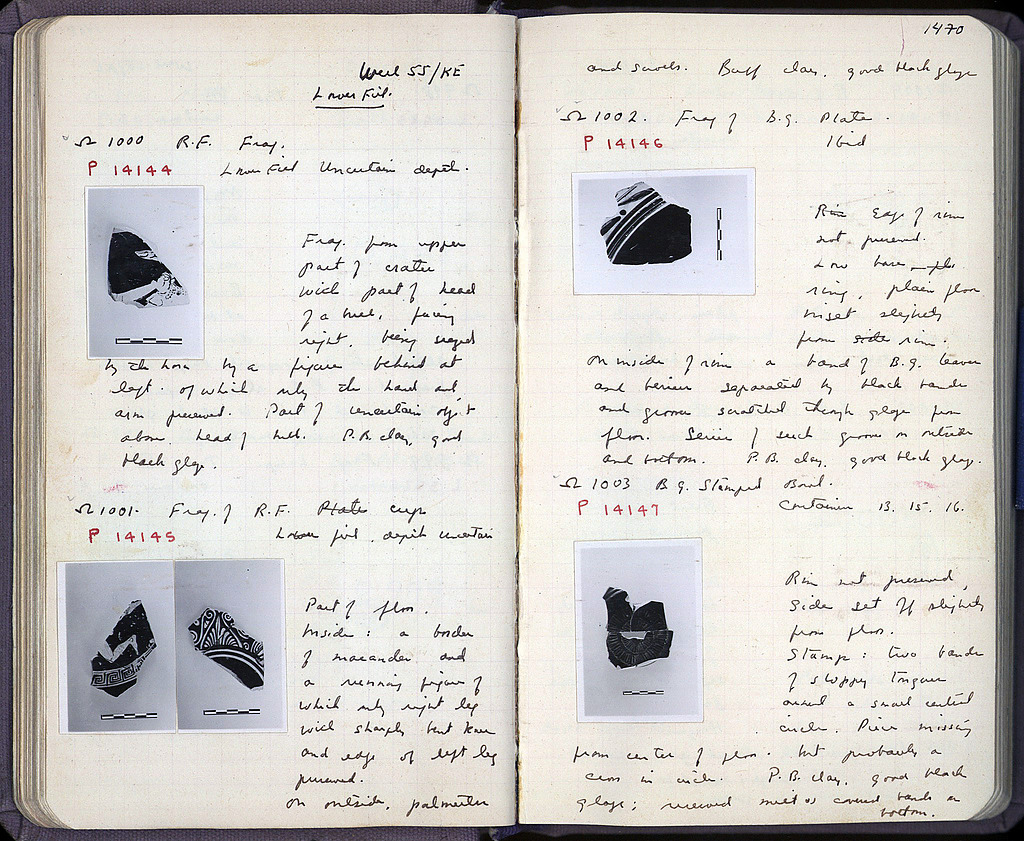 Well 55/KE
Lower Fill.
Ω 1000 R.F. Frag.
P 14144 Lower Fill Uncertain depth.
Frag. from upper
part of crater
with part of head
of a bull, facing
right, being seized
by the horn by a figure behind at
left. of which only the hand and
arm preserved. Part of uncertain obj't
above head of bull. P.B. clay, good
black glaze.
Ω 1001. Frag. of R.F. Plate cup
P 14145 Lower fill, depth uncertain
Part of floor.
Inside: a border
of maeander and
a running figure of
which only right leg
with sharply bent knee
and edge of left leg
preserved.
On outside, palmettes
1470
and scrolls. Buff clay, good black glaze
Ω 1002. Frag of B.G. Plate.
P 14146 Ibid
Rim Edge of rim
not preserved.
Low base
ring, plain floor
inset slightly
from side rim.
On inside of rim a band of B.G. leaves
and berries separated by black bands
and grooves scratched through glaze from
floor. Series of such grooves on outside
and bottom. P.B. clay, good black glaze.
Ω 1003 B.G. Stamped Bowl.
P 14147 Container 13. 15. 16.
Rim not preserved,
Side set off slightly
from floor.
Stamp: two bands
of sloppy tongues
around a small central
circle. Piece missing
from center of floor. but probably a
cross in circle. P.B. clay, good black
glaze; reserved bands on
bottom.